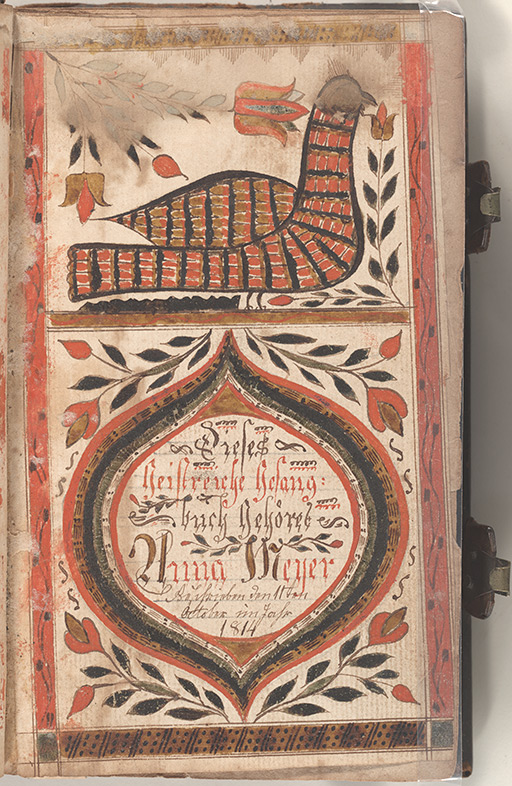 Dieses
Geistreiche Gesang:
buch Gehöret
Anna Meyer
Geschrieben den 11ten
October im Jahr
1814